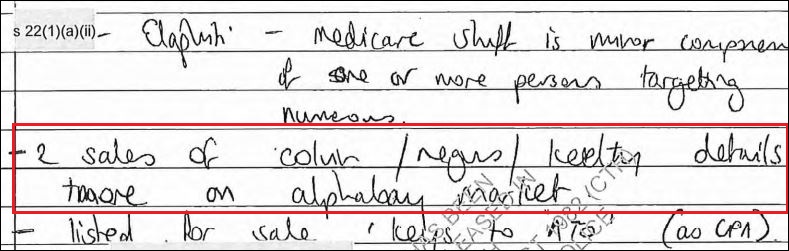 s 22(1)(a)(ii) - Elaphiti - medicare stuff is minor componen
of one or more persons targeting
numerous.
- 2 sales of colvin / negus / keelty details
+ more on alphabay market
- listed for sale 'keys to ATO' (as CPA).
S BEEN
EASED IN
1982 (CTH)
POLICE